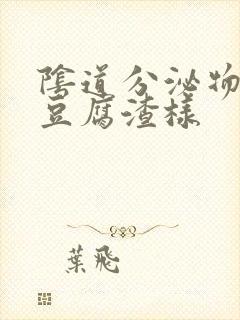 陰道分泌物
豆腐渣樣
葉飛